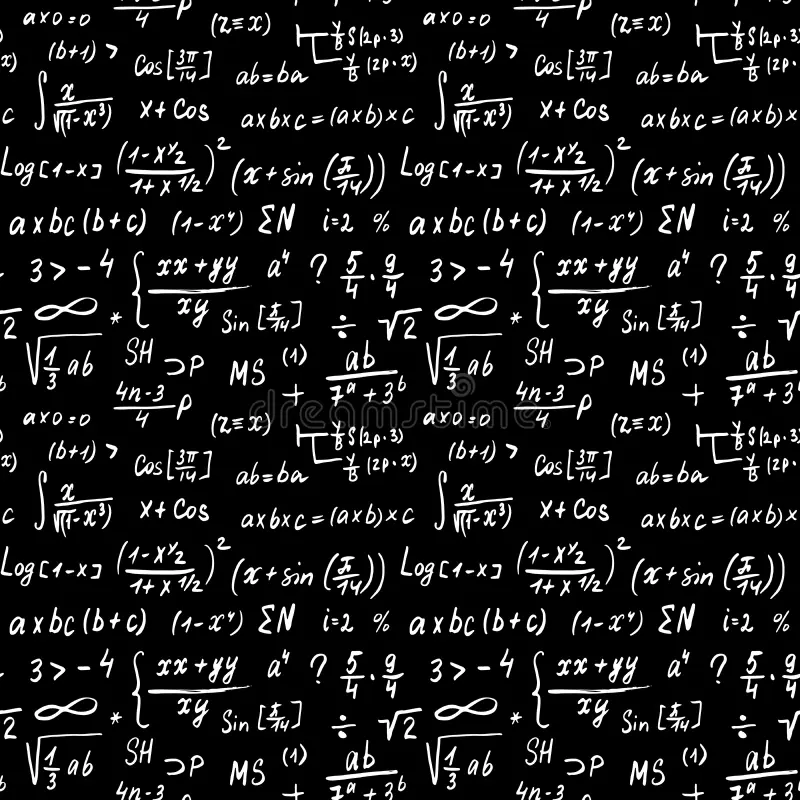 axo=0 4 P (z≡x) y/B S(2p·3) axo=0 4 P (z≡x) y/B S(2p·3)
x) (b+1) > Cos[3π/14] ab=ba y/B (2p·x) (b+1) > Cos[3π/14] ab=ba y/B (2p·
c ∫ x/√(1-x³) x+Cos axbxc=(axb)xc ∫ x/√(1-x³) x+Cos axbxc=(axb)x
Log[1-x] ((1-xy2)/(1+x1/2))² (x+sin(π/14)) Log[1-x] ((1-xy2)/(1+x1/2))² (x+sin(π/14))
axbc(b+c) (1-x⁴) ΣN i=2 % axbc(b+c) (1-x⁴) ΣN i=2 %
3>-4 { (xx+yy)/xy a⁴ ? 5/4·9/4 3>-4 { (xx+yy)/xy a⁴ ? 5/4·9/4
2 ∞ * Sin[π/14] ÷ √2 ∞ * Sin[π/14] ÷ √
√(1/3 ab) SH ⊃P MS (1) ab/(7ª+3ᵇ) √(1/3 ab) SH ⊃P MS (1) ab/(7ª+3ᵇ)
(4n-3)/4 P + (4n-3)/4 P +
dreamstime
axo=0 (z≡x) y/B S(2p·3) axo=0 (z≡x) y/B S(2p·3)
x) (b+1) > Cos[3π/14] ab=ba y/B (2p·x) (b+1) > Cos[3π/14] ab=ba y/B (2p·
c ∫ x/√(1-x³) x+Cos axbxc=(axb)xc ∫ x/√(1-x³) x+Cos axbxc=(axb)x
Log[1-x] ((1-xy2)/(1+x1/2))² (x+sin(π/14)) Log[1-x] ((1-xy2)/(1+x1/2))² (x+sin(π/14))
axbc(b+c) (1-x⁴) ΣN i=2 % axbc(b+c) (1-x⁴) ΣN i=2 %
3>-4 { (xx+yy)/xy a⁴ ? 5/4·9/4 3>-4 { (xx+yy)/xy a⁴ ? 5/4·9/4
2 ∞ * Sin[π/14] ÷ √2 ∞ * Sin[π/14] ÷ √
√(1/3 ab) SH ⊃P MS (1) ab/(7ª+3ᵇ) √(1/3 ab) SH ⊃P MS (1) ab/(7ª+3ᵇ)
4n-3 P + 4n-3 P +